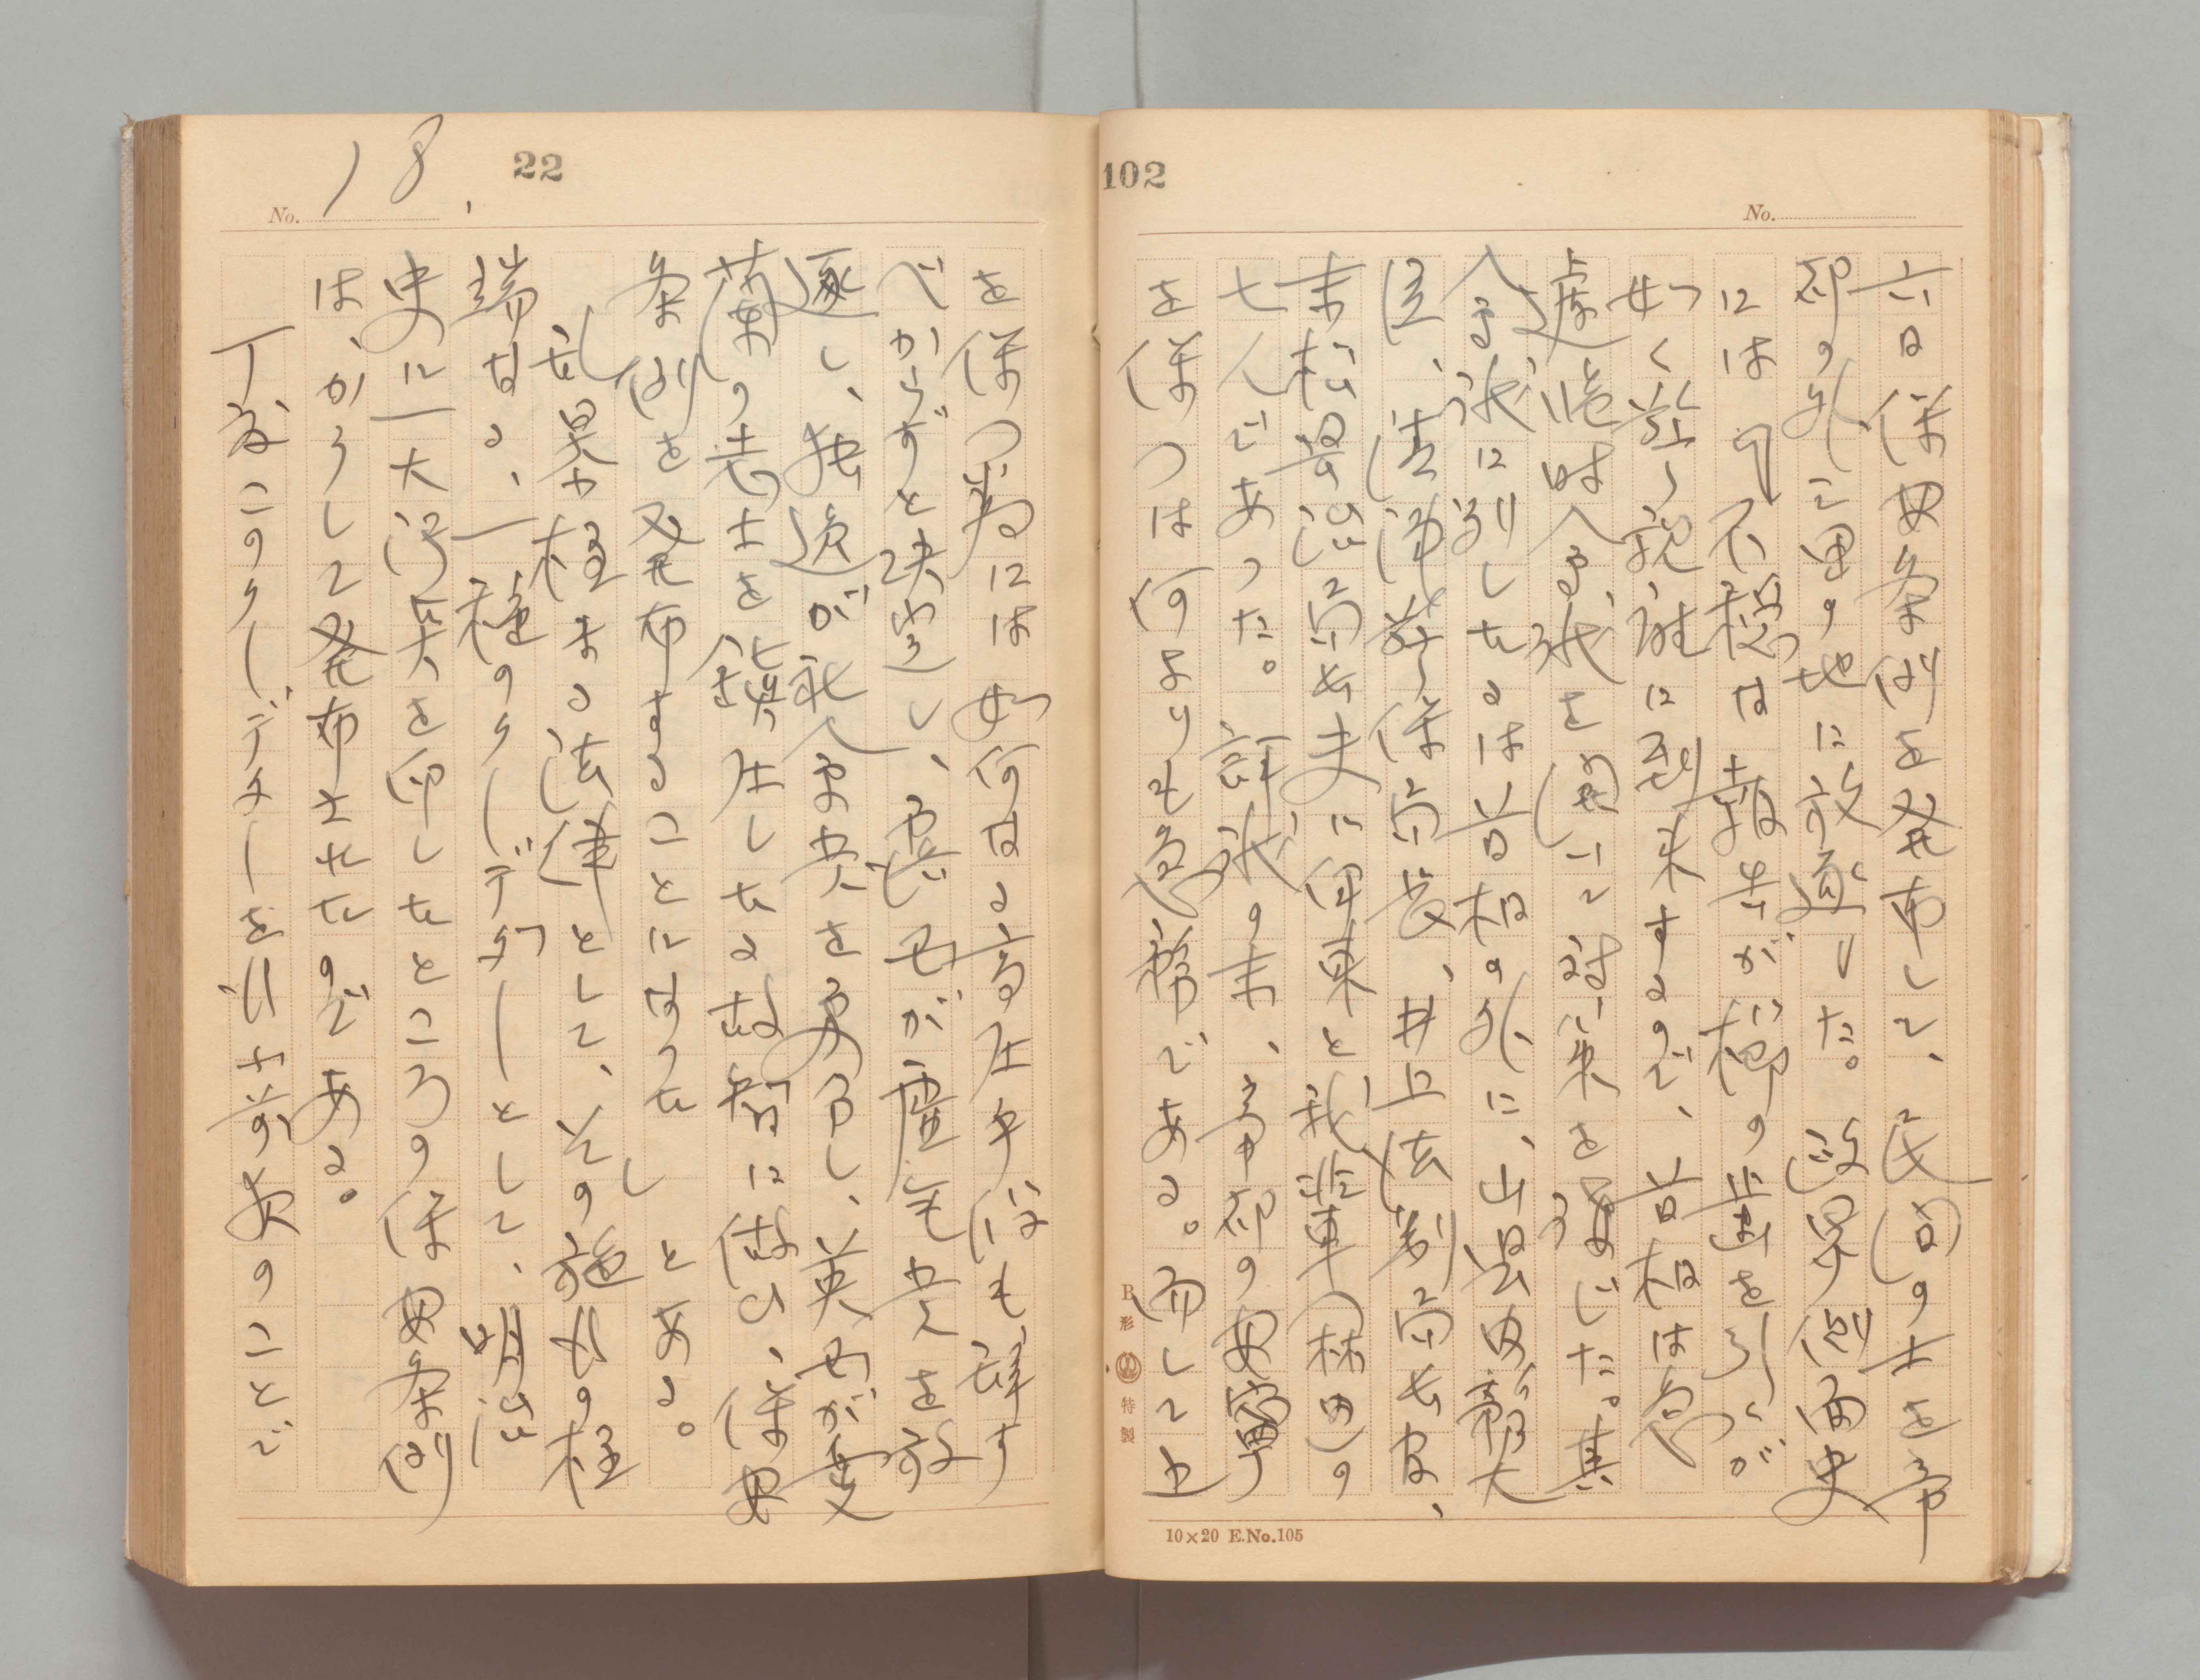 102
No.
六日保安条例を発布して、民間の士を帝
都の外三里の地に放逐した。政界側面史
には『不穏な報告が櫛の歯を引くが
如く並々親敵に到来するので、首相は
遽に臨時会議を開いて対策を講じた。其
会議に列したるは首相の外に、山県内務大
臣、清浦警保局長、井上法制局長官、
末松県治局長夫に伊東と我輩(林田)の
七人であった。評議の末、帝都の安寧
を保つは何よりも急務である。而して之
B形 特製
10×20 E.No.105
22
No. 18.
を保つ為には如何なる高圧手段も辞す
べからずと決定し、霊世が塵芥を放
逐し、独逸が社会党を勇名し、英世が愛
蘭の志士を鎮圧したる故智に倣ひ、保安
条例を発布することになつた』とある。
乱暴極まる法律として、その施行の極
端なる、一種のクーデターとして、明治
史に一大汚点を印したところの保安条例
は、かうして発布されたのである。
丁度このクーデターを行ふ前夜のことで